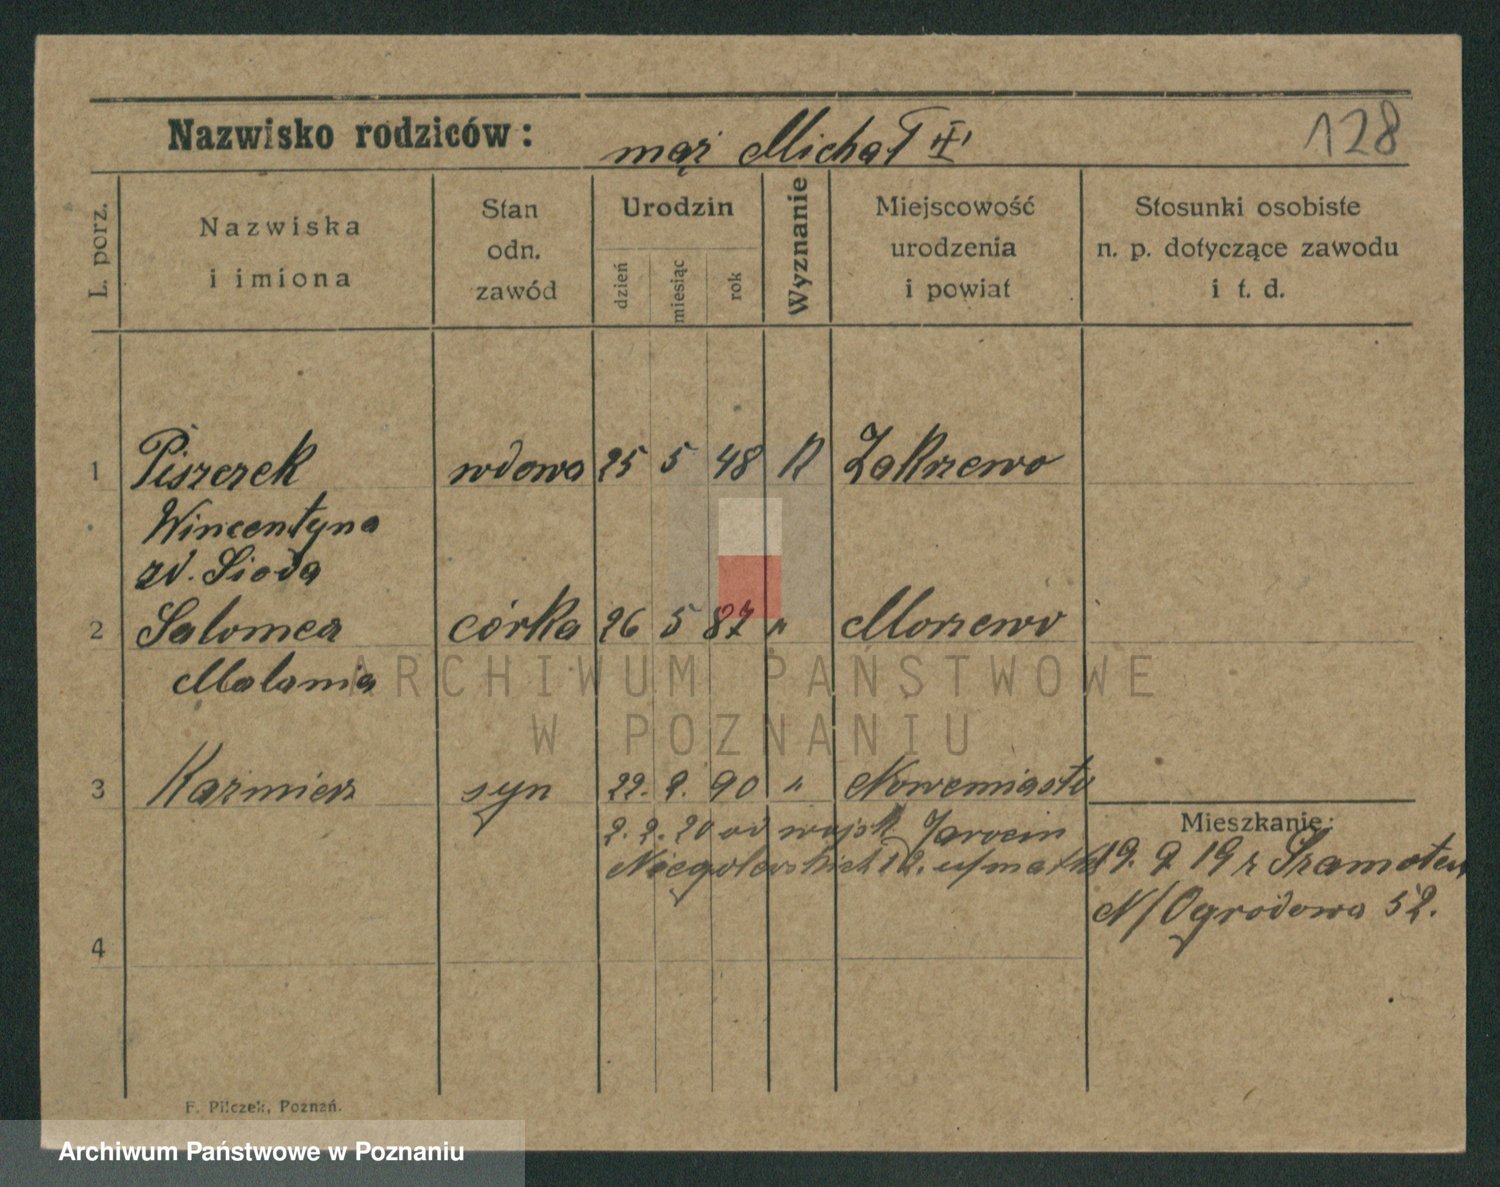 128
Nazwisko rodziców: mąż Michał
L. porz.
Nazwiska
i imiona
Stan
odn.
zawód
Urodzin
dzień
miesiąc
rok
Wyznanie
Miejscowość
urodzenia
i powiat
Stosunki osobiste
n. p. dotyczące zawodu
i t. d.
1 Piszczek wdowa 25 5 48 K Zakrzewo
Wincentyna
zd. Sioda
2 Salomea córka 26 5 87 " Morzewo
Malania
3 Kazmierz syn 22. 2. 90 " Nowemiasto
2. 2. 20 od wojsk Jarocin
Niegolewskich 12. u/matki
Mieszkanie:
19. 9 19 r Szamotuły
N/Ogrodowa 52.
4
F. Pilczek, Poznań.
ARCHIWUM PAŃSTWOWE
W POZNANIU
Archiwum Państwowe w Poznaniu